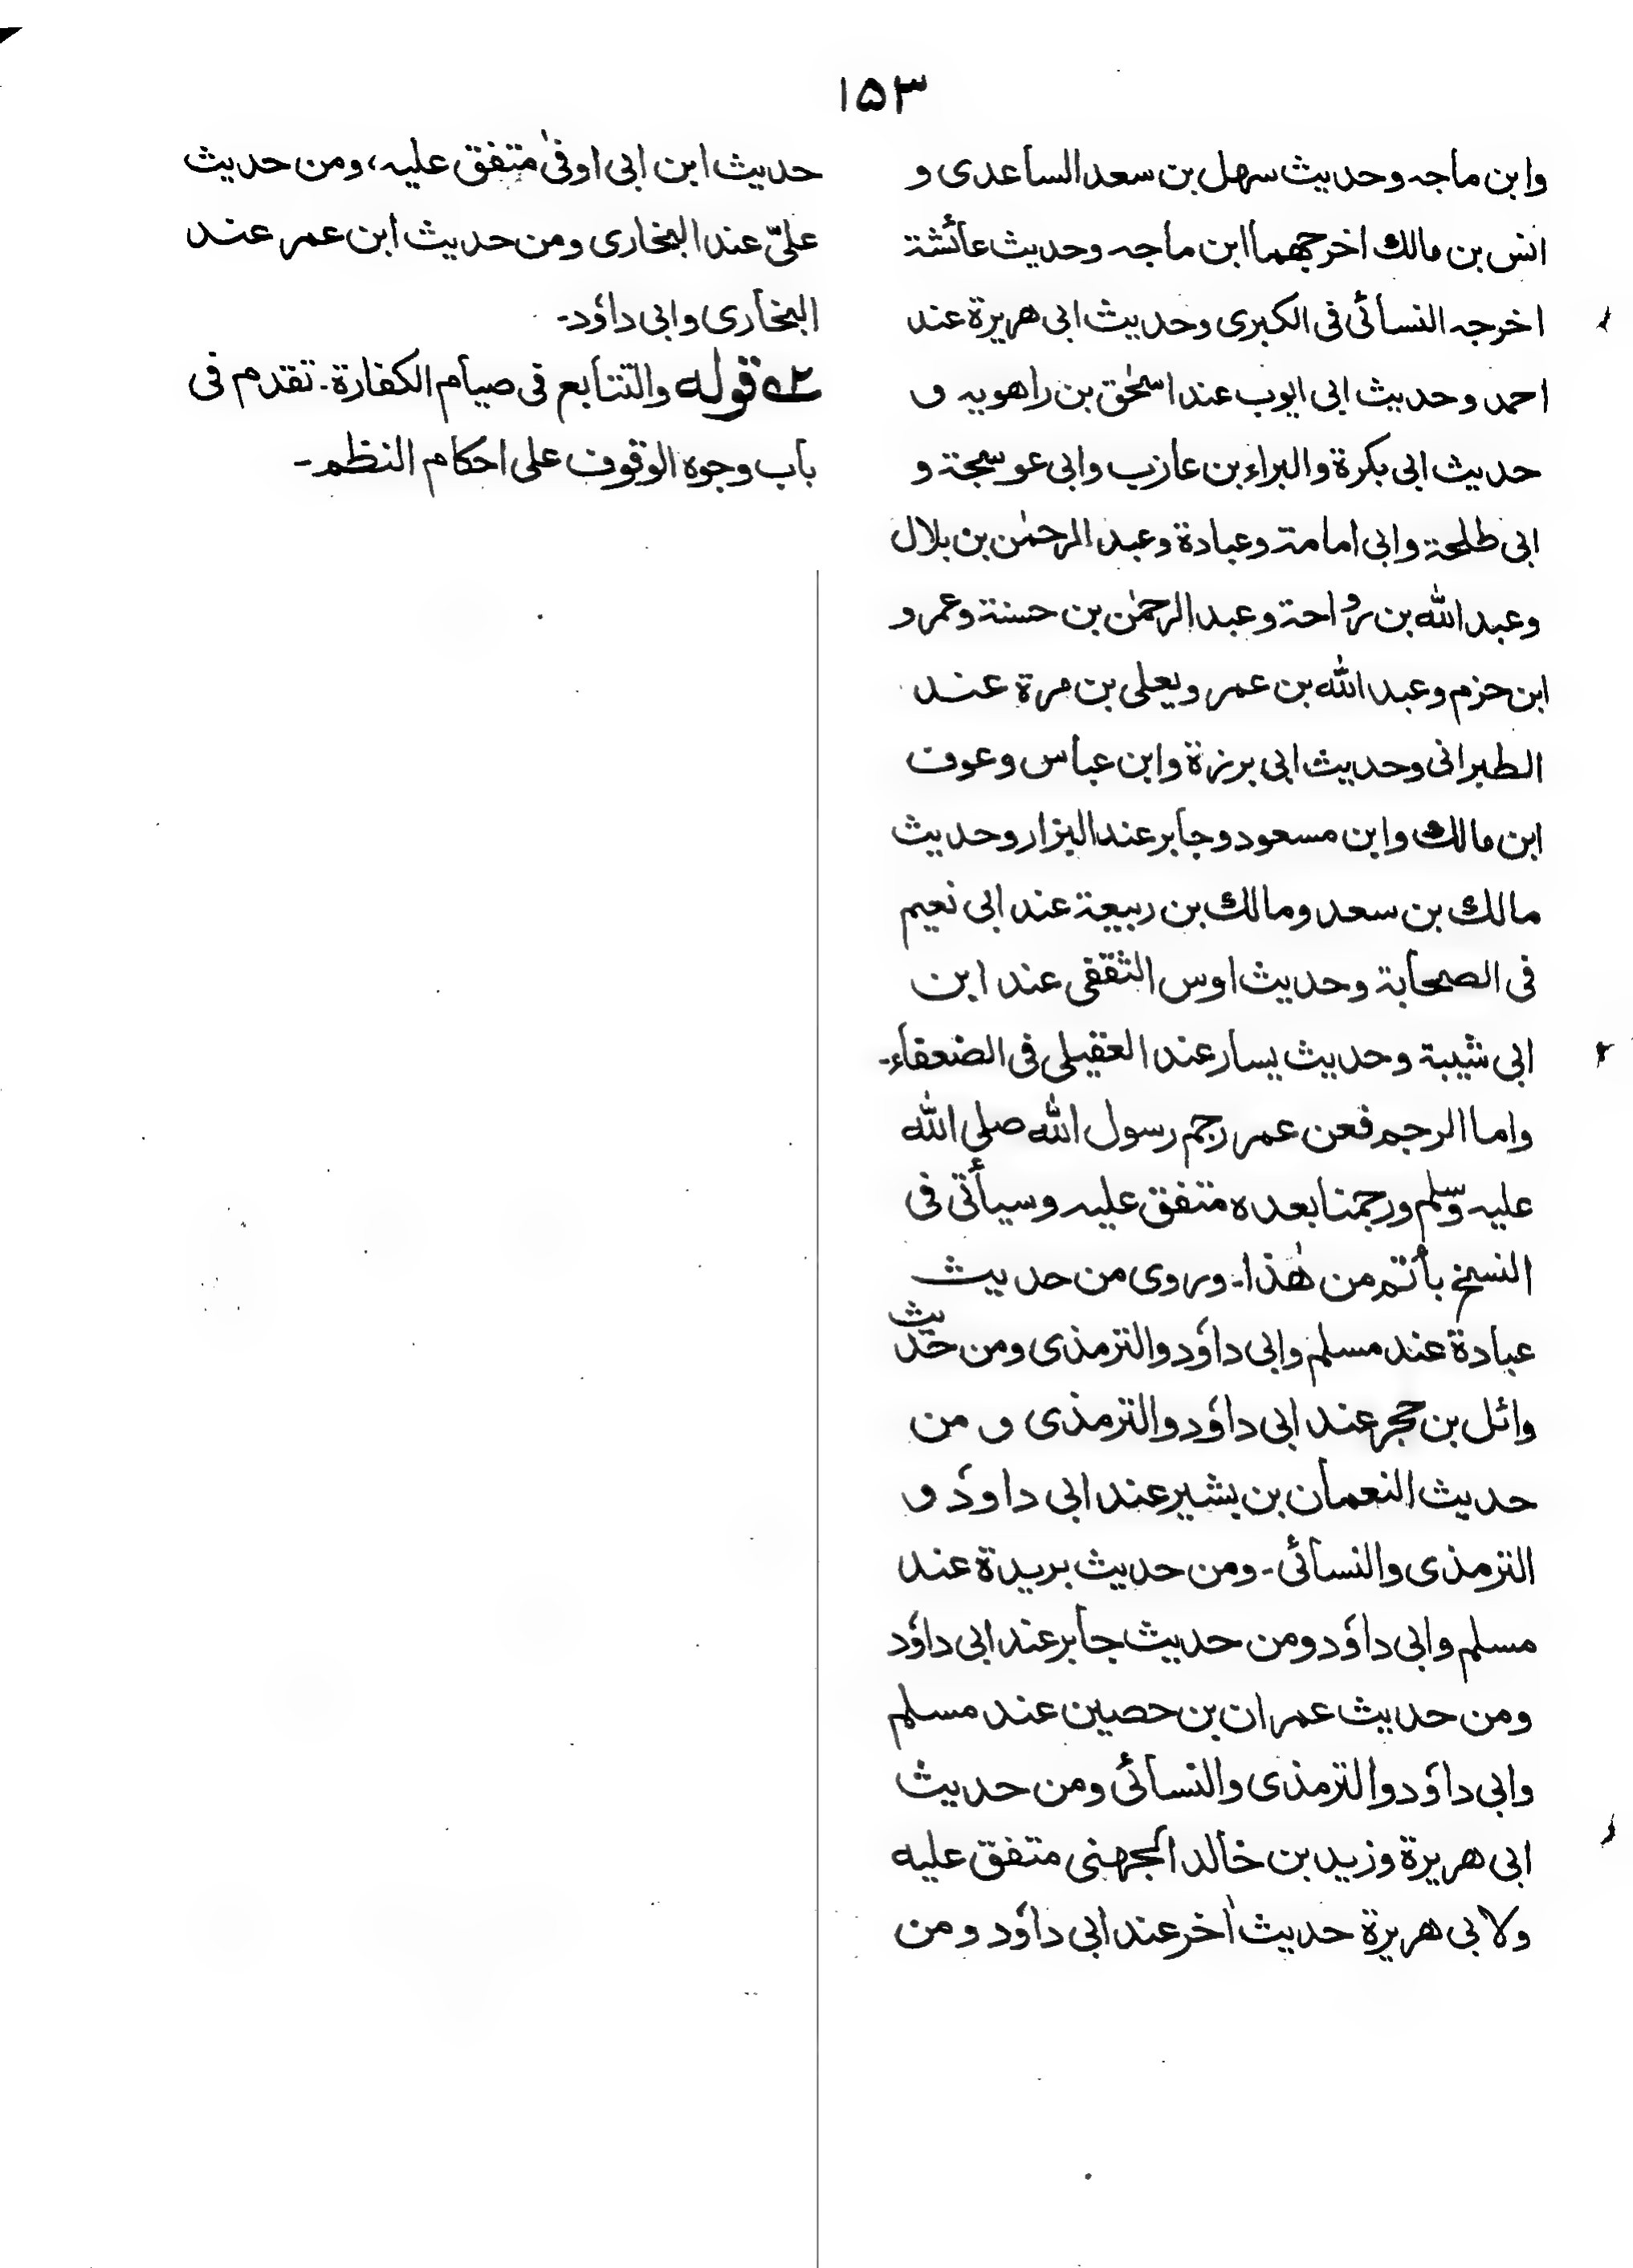 ۱۵۳
وابن ماجہ وحدیث سهل بن سعد الساعدی و
انس بن مالك اخرجهما ابن ماجہ وحدیث عائشة
اخرجہ النسائی فی الکبری وحدیث ابی هریرة عند
احمد وحدیث ابی ایوب عند اسحٰق بن راهویہ و
حدیث ابی بکرة والبراء بن عازب وابی عوسجة و
ابی طلحة وابی امامة وعبادة وعبد الرحمٰن بن بلال
وعبد اللّٰه بن رواحة وعبد الرحمٰن بن حسنة وعمرو
ابن حزم وعبد اللّٰه بن عمر ویعلی بن مرة عند
الطبرانی وحدیث ابی برزة وابن عباس وعوف
ابن مالك وابن مسعود وجابر عند البزار وحدیث
مالك بن سعد ومالك بن ربیعة عند ابی نعیم
فی الصحابة وحدیث اوس الثقفی عند ابن
ابی شیبة وحدیث یسار عند العقیلی فی الضعفاء۔
واما الرجم فعن عمر رجم رسول اللّٰه صلی اللّٰه
علیہ وسلم ورجمنا بعده متفق علیہ وسیأتی فی
النسخ بأتم من هٰذا۔ وروی من حدیث
عبادة عند مسلم وابی داؤد والترمذی ومن حدیث
وائل بن حجر عند ابی داؤد والترمذی و من
حدیث النعمان بن بشیر عند ابی داؤد و
الترمذی والنسائی۔ ومن حدیث بریدة عند
مسلم وابی داؤد ومن حدیث جابر عند ابی داؤد
ومن حدیث عمران بن حصین عند مسلم
وابی داؤد والترمذی والنسائی ومن حدیث
ابی هریرة وزید بن خالد الجهنی متفق علیه
ولابی هریرة حدیث اٰخر عند ابی داؤد ومن
حدیث ابن ابی اوفیٰ متفق علیہ، ومن حدیث
علیّ عند البخاری ومن حدیث ابن عمر عند
البخاری وابی داؤد۔
۲؎ قوله والتتابع فی صیام الکفارة۔ تقدم فی
باب وجوه الوقوف علی احکام النظم۔